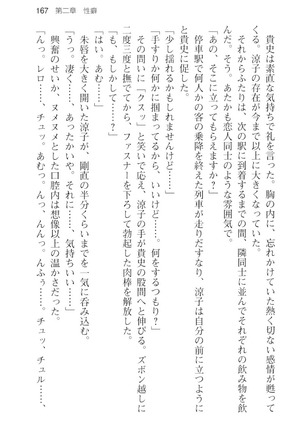 167　第二章　性癖
貴史は素直な気持ちで礼を言った。胸の内に、忘れかけていた熱く切ない感情が甦って
くる。涼子の存在が今まで以上に大きくなっていた。
それからふたりは、次の駅に到着するまでの間、隣同士に並んでそれぞれの飲み物を飲
んだ。そう、あたかも恋人同士のような雰囲気で。
停車駅で何人かの客の乗降を終えた列車が走りだすなり、涼子は自分の前に立つように
と貴史に促した。
「あの、そこに立ってもらえますか？」
「少し揺れるかもしれませんけど……」
「手すりか何かに掴まってるから、いいけど。……何をするつもり？」
その問いに「クスッ」と笑いで応え、涼子の手が貴史の股間へと伸びる。ズボン越しに
二度三度と撫でてから、ファスナーを下ろして勃起した肉棒を解放した。
「も、もしかして……？」
「はい。あむっ……」
朱唇を大きく開いた涼子が、剛直の半分くらいまでを一気に呑み込む。
「うっ。凄く……あったかいや。それに……気持ちいい……」
興奮のせいか、ヌメヌメとした口腔内は想像以上の温かさだった。
「んっ。レロ……、チュッ。あむっ。んっ、んんっ。んふぅ……。チュッ、チュル……、